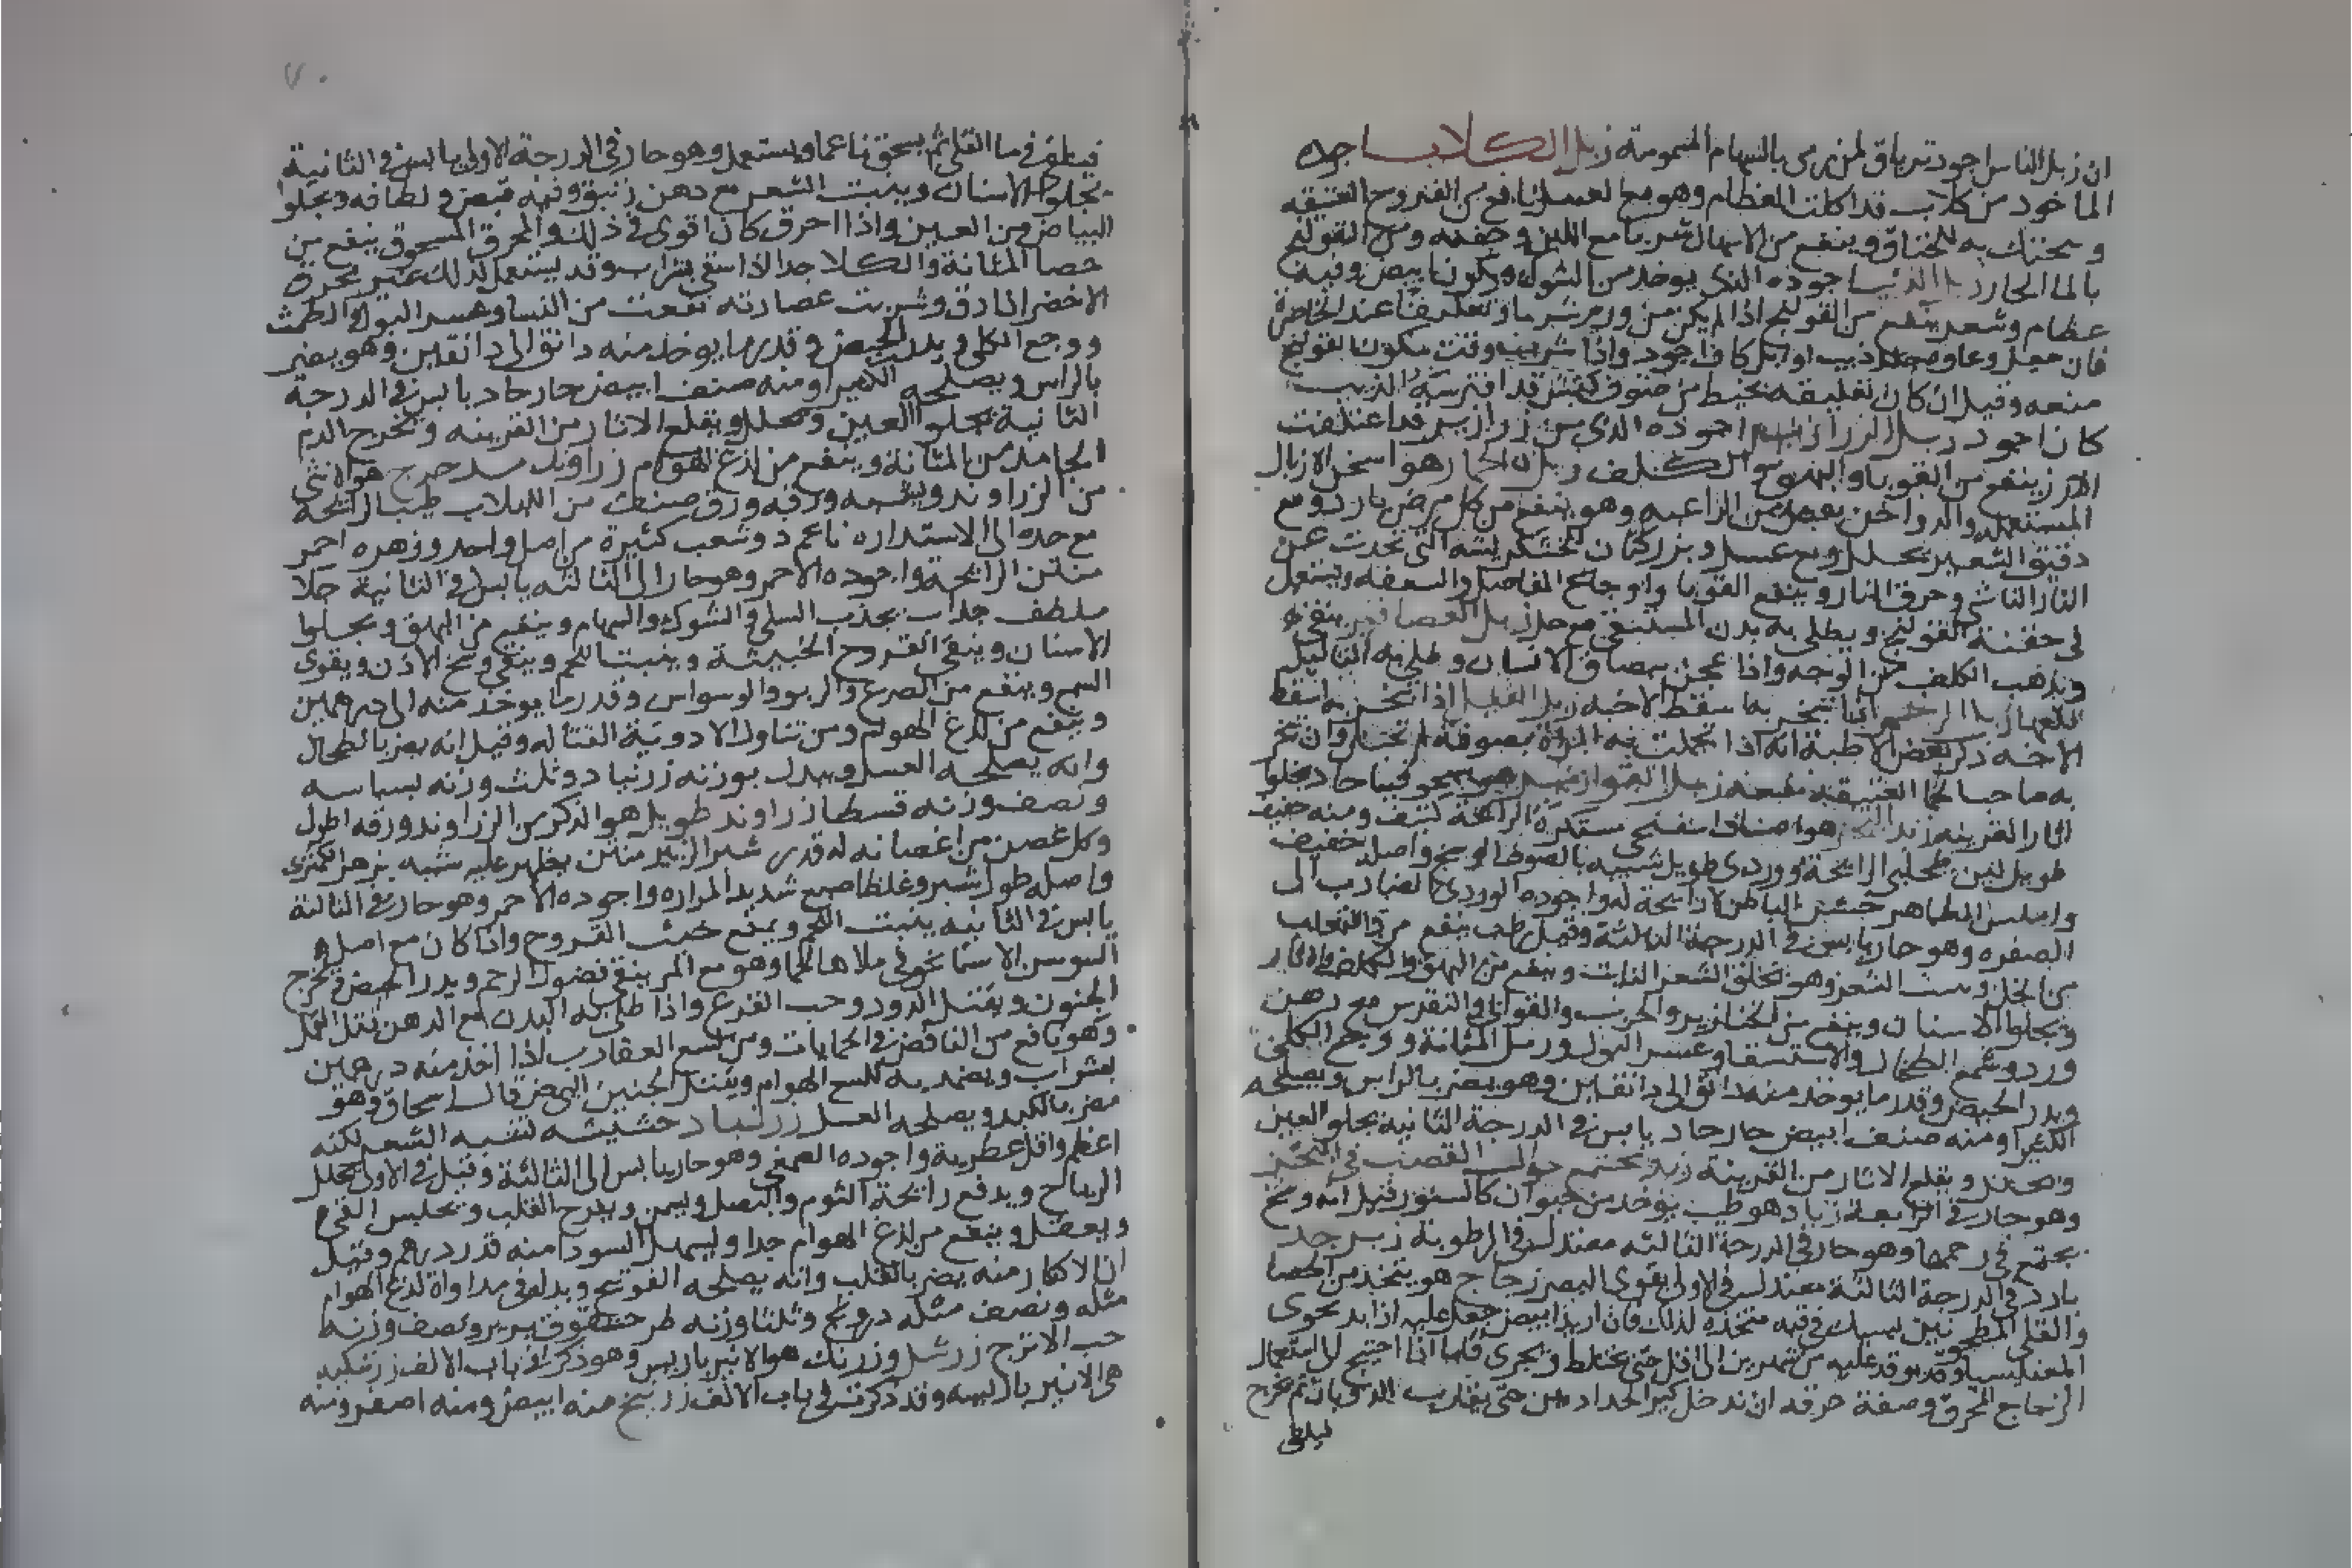 ان زبل الناس اجود ترياق لمن يرمى بالسهام المسمومة زبل الكلاب اجوده
الماخود من كلاب قد اكلت العظام وهو مع العسل نافع من القروح العتيقه
و يتحنك به للخناق وينفع من الاسهال شربا مع اللبن وحقنه ومن القولنج
بالما الحار زبل الذئب اجوده الذى يوخد من الشوك ويكون ابيض وفيه
عظام وشعر ينفع من القولنج اذا لم يكن من ورم شربا وتعليقا عند الخاصرة
فان جعل وعاوه جلد ذيب او ايل كان اجود واذا شرب وقت سكون القولنج
منعه وقيل ان كان تعليقه بخيط من صوف كبش قد افترسه الذيب
كان اجود زبل الزرازير اجوده الدى من زرازير قد اعتلفت
الارز ينفع من القوبا والبهق والكلف زبل الحمار هو اسخن الازبال
المستعمله والدواجن من الراعيه وهو ينفع من كل مرض بارد ومع
دقيق الشعير يحلل ومع عسل وبزر كتان الخشكريشه التى تحدث عن
النار الفارسى وحرق النار وينفع القوبا واوجاع المفاصل والسعفه ويستعمل
فى حقنة القولنج ويطلى به بدن المستسقى مع خل زبل العصافير ينقى
ويذهب الكلف من الوجه واذا عجن ببصاق الانسان وطلى به الثاليل
قلعها زبل الرخم اذا تبخر به اسقط الاجنه زبل الفيل اذا تبخر به اسقط
الاجنه ذكر بعض الاطبة انه اذا تحملت به المراة بصوفة لم تحبل وان بخر
به صاحب الحما العتيقة نفعته زبل
اثار القرنيه زبد البحر هو اصناف اسفنجى مستكره الرائحة كثيف ومنه خفيف
طويل لين طحلبى الرائحة ووردى طويل شبيه بالصوف الوسخ واصله خفيف
واملس الظاهر خشن الباطن لا رائحة له واجوده الوردى الضارب الى
الصفره وهو حار يابس فى الدرجة الثالثة وقيل رطب ينفع من دا الثعلب
وينبت الشعر وهو يحلق الشعر النابت وينفع من البهق والكلف والاثار
ويجلوا الاسنان وينفع من الخنازير والجرب والقوابى والنقرس مع دهن
ورد وشمع الطحال والاستسقا وعسر البول ورمل المثانة ووجع الكلى
ويدر الحيض وقدر ما يوخذ منه دانق الى دانقين وهو يضر بالراس ويصلحه
الكثيرا ومنه صنف ابيض حار حاد يابس فى الدرجة الثانية يجلو العين
ويحلل ويقلع الاثار من القرنية زبد يجتمع حوالى القصب فى البحر
وهو حار فى الرابعة زباد هو طيب يوخد من حيوان كالسنور قيل انه وسخ
يجتمع فى رحمها وهو حار فى الدرجة الثالثه معتدل فى الرطوبة زبرجد
بارد فى الدرجة الثالثة معتدل فى الاولى يقوى البصر زجاج هو يتخذ من الحصا
والقلى المطحونين يسبك فى قبه متخذه لذلك فان اريد ابيض جعل عليه
حتى يختلط ويجرى فاما اذا احتيج الى استعمال
الزجاج المحرق وصفة حرقه ان تدخل كير الحدادين حتى يقارب الذوبان ثم يخرج
فيلقى
٧٠
فيطفى فى ما القلى ثم يسحق ناعما ويستعمل وهو حار فى الدرجة الاولى يابس فى الثانية
يجلو الاسنان وينبت الشعر مع دهن زنبق وفيه قبض ولطافه ويجلوا
البياض من العين واذا احرق كان اقوى فى ذلك والمحرق المسحوق ينفع من
حصا المثانة والكلا جدا اذا سقى بشراب وقد يستعمل لذلك غير محرق
الاخضر اذا دق وشربت عصارته نفعت من النسا وعسر البول والطمث
ووجع الكلى ويدر الحيض وقدر ما يوخذ منه دانق الى دانقين وهو يضر
بالراس ويصلحه الكثيرا ومنه صنف ابيض حار حاد يابس فى الدرجة
الثانية يجلوا العين ويحلل ويقلع الاثار من القرنيه ويخرج الدم
الجامد من المثانة وينفع من لذع الهوام زراوند مدحرج هو الانثى
من الزراوند ويشبه ورقه ورق صنف من اللبلاب طيب الرائحة
مع حده الى الاستداره ناعم ذو شعب كثيرة من اصل واحد وزهره احمر
منتن الرائحة واجوده الاحمر وهو حار الى الثالثه يابس فى الثانية جلا
ملطف جداب يجذب السلى والشوك والسهام وينفع من البهق ويجلوا
الاسنان وينقى القروح الخبيثة وينبت اللحم وينقى وسخ الاذن ويقوى
السمع وينفع من الصرع والربو والوسواس وقدر ما يوخذ منه الى درهمين
وينفع من لذع الهوام ومن تناول الادوية القتاله وقيل انه يضر بالطحال
وانه يصلحه العسل ويبدل بوزنه زرنباد وثلث وزنه بسباسه
ونصف وزنه قسطا زراوند طويل هو الذكر من الزراوند وورقه اطول
وكل غصن من اغصانه له قدر شبر الزهر منتن يظهر عليه شبه بزهر الكمثرى
واصله طول شبر وغلظ اصبع شديد المراره واجوده الاحمر وهو حار فى الثالثة
يابس فى الثانيه ينبت اللحم ويمنع خبث القروح واذا كان مع اصل
السوسن الاسمانجونى ملاها لحما وهو مع المر ينقى فضول الرحم ويدر الحيض ويخرج
الجنين ويقتل الدود وحب القرع واذا طلى به البدن مع الدهن قتل القمل
وهو نافع من النافض فى الحمايات ومن لسع العقارب اذا اخذ منه درهمين
بشراب ويضمد به للسع الهوام ويقتل الجنين البعض قال اسحاق وهو
مضر بالكبد ويصلحه العسل زرنباد حشيشه تشبه السعد لكنه
اعظم واقل عطرية واجوده الصينى وهو حار يابس الى الثالثة وقيل فى الاولى يحلل
الرياح ويدفع رائحة الثوم والبصل ويسمن ويفرح القلب ويحبس القى
ويعقل وينفع من لذع الهوام جدا ويسهل السودا منه قدر درهم وقيل
ان الاكثار منه يضر بالقلب وانه يصلحه الفوتنج وبدله فى مداواة لذع الهوام
مثله ونصف مثله درونج وثلثا وزنه طرحشقوق برى ونصف وزنه
حب الاترج زرشك وزرنك هو الانبرباريس وهو ذكر فى باب الالف
هى الانبرباريسه وقد ذكرت فى باب الالف زرنيخ منه ابيض ومنه اصفر ومنه